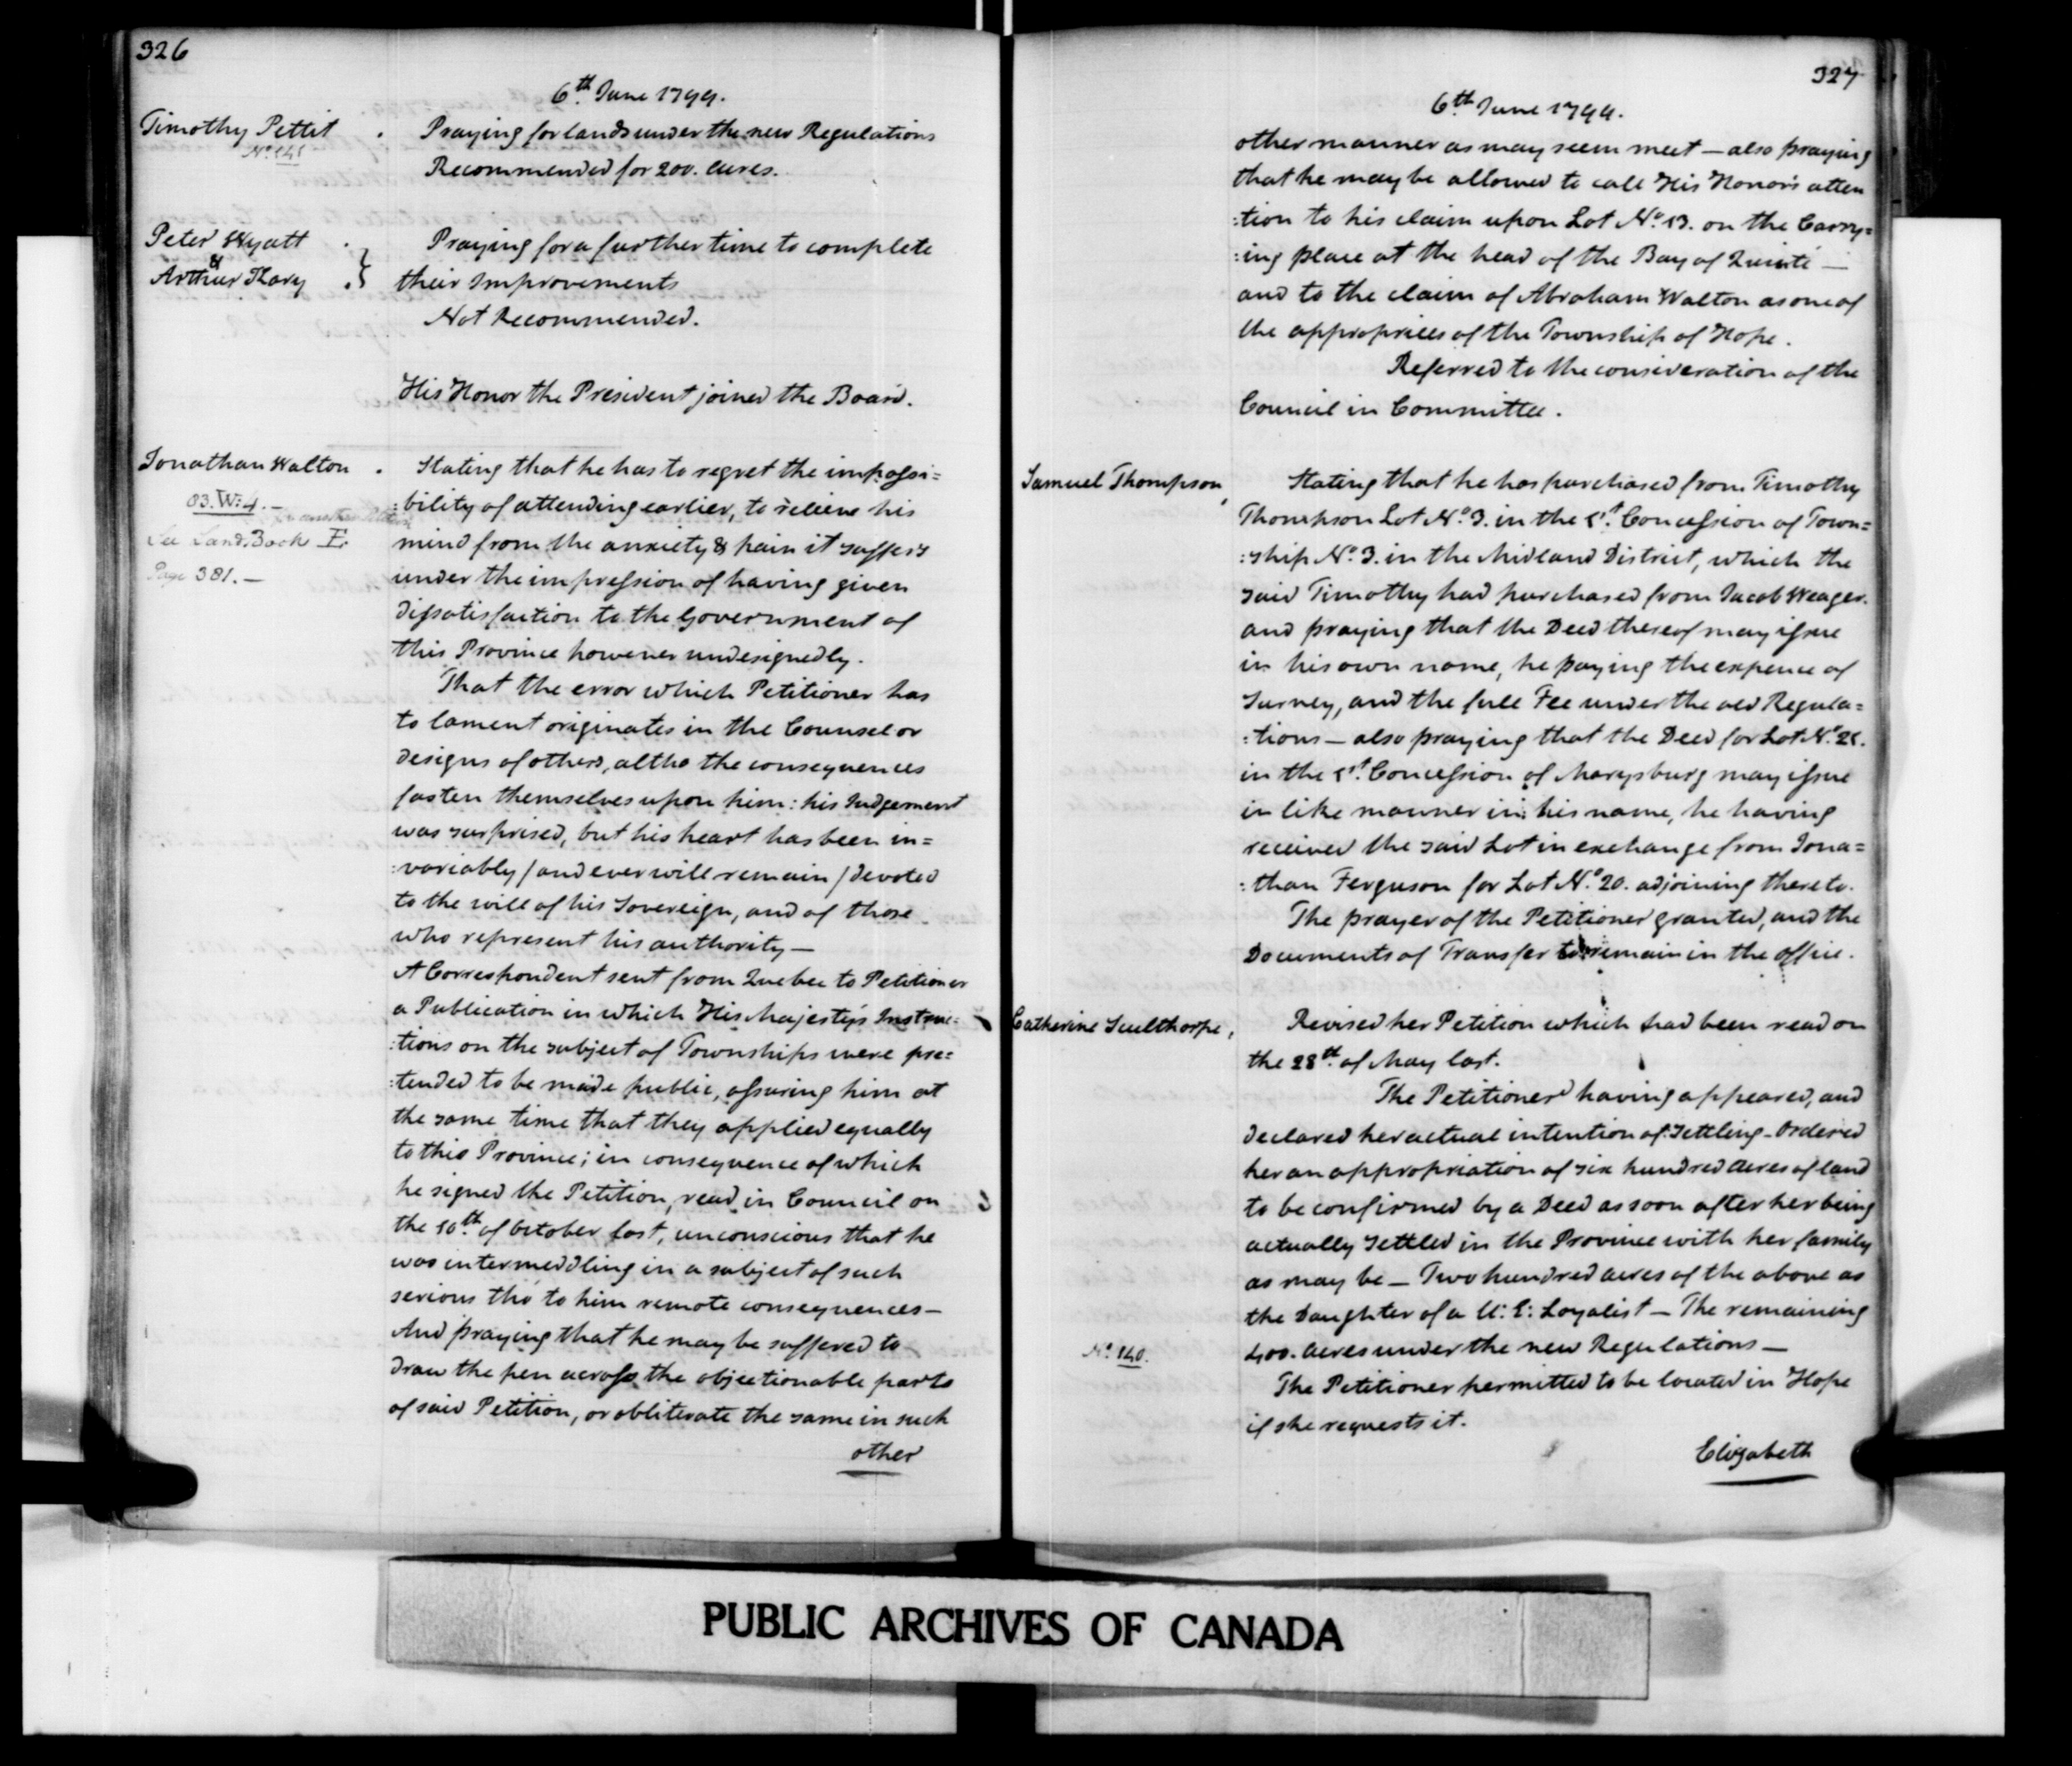 326
6th June 1799.
Timothy Pettit . Praying for lands under the new Regulations
No. 141
Recommended for 200. Acres.
Peter Wyatt . Praying for a further time to complete
&
Arthur . } their Improvements
Not Recommended.
His Honor the President joined the Board.
Jonathan Walton . Stating that he has to regret the impossi=
83. W: 4. —
:bility of attending earlier, to relieve his
See Land Book E.
mind from the anxiety & pain it suffers
Page 381. —
under the impression of having given
dissatisfaction to the Government of
this Province however undesignedly.
That the error which Petitioner has
to lament originates in the Counsel or
designs of others, altho the consequences
fasten themselves upon him: his Judgement
was surprised, but his heart has been in=
:variably / and ever will remain / devoted
to the will of his Sovereign, and of those
who represent his authority —
A Correspondent sent from Quebec to Petitioner
a Publication in which His Majesty's Instruc=
:tions on the subject of Townships were pre=
:tended to be made public, assuring him at
the same time that they applied equally
to this Province; in consequence of which
he signed the Petition, read in Council on
the 10th of October last, unconscious that he
was intermeddling in a subject of such
serious tho' to him remote consequences —
And praying that he may be suffered to
draw the pen across the objectionable parts
of said Petition, or obliterate the same in such
other
327
6th June 1799.
other manner as may seem meet — also praying
that he may be allowed to call His Honor's atten
:tion to his claim upon Lot No. 13. on the Carry=
:ing place at the head of the Bay of Quinte —
and to the claim of Abraham Walton as one of
the appropriees of the Township of Hope.
Referred to the consideration of the
Council in Committee.
Samuel Thompson, Stating that he has purchased from Timothy
Thompson Lot No. 3. in the 1st. Concession of Town=
:ship No. 3. in the Midland District, which the
said Timothy had purchased from Jacob Weager.
and praying that the Deed thereof may issue
in his own name, he paying the expence of
Survey, and the full Fee under the old Regula=
:tions — also praying that the Deed for Lot No. 21.
in the 1st. Concession of Marysburg may issue
in like manner in his name, he having
received the said Lot in exchange from Jona=
:than Ferguson for Lot No. 20. adjoining thereto.
The prayer of the Petitioner granted, and the
Documents of Transfer to remain in the office.
Catherine Sculthorpe, Revised her Petition which had been read on
the 28th. of May last.
The Petitioner having appeared, and
declared her actual intention of Settling — Ordered
her an appropriation of six hundred Acres of land
to be confirmed by a Deed as soon after her being
actually settled in the Province with her family
as may be — Two hundred acres of the above as
the Daughter of a U: E: Loyalist — The remaining
No. 140. 400. Acres under the new Regulations —
The Petitioner permitted to be located in Hope
if she requests it.
Elizabeth
PUBLIC ARCHIVES OF CANADA